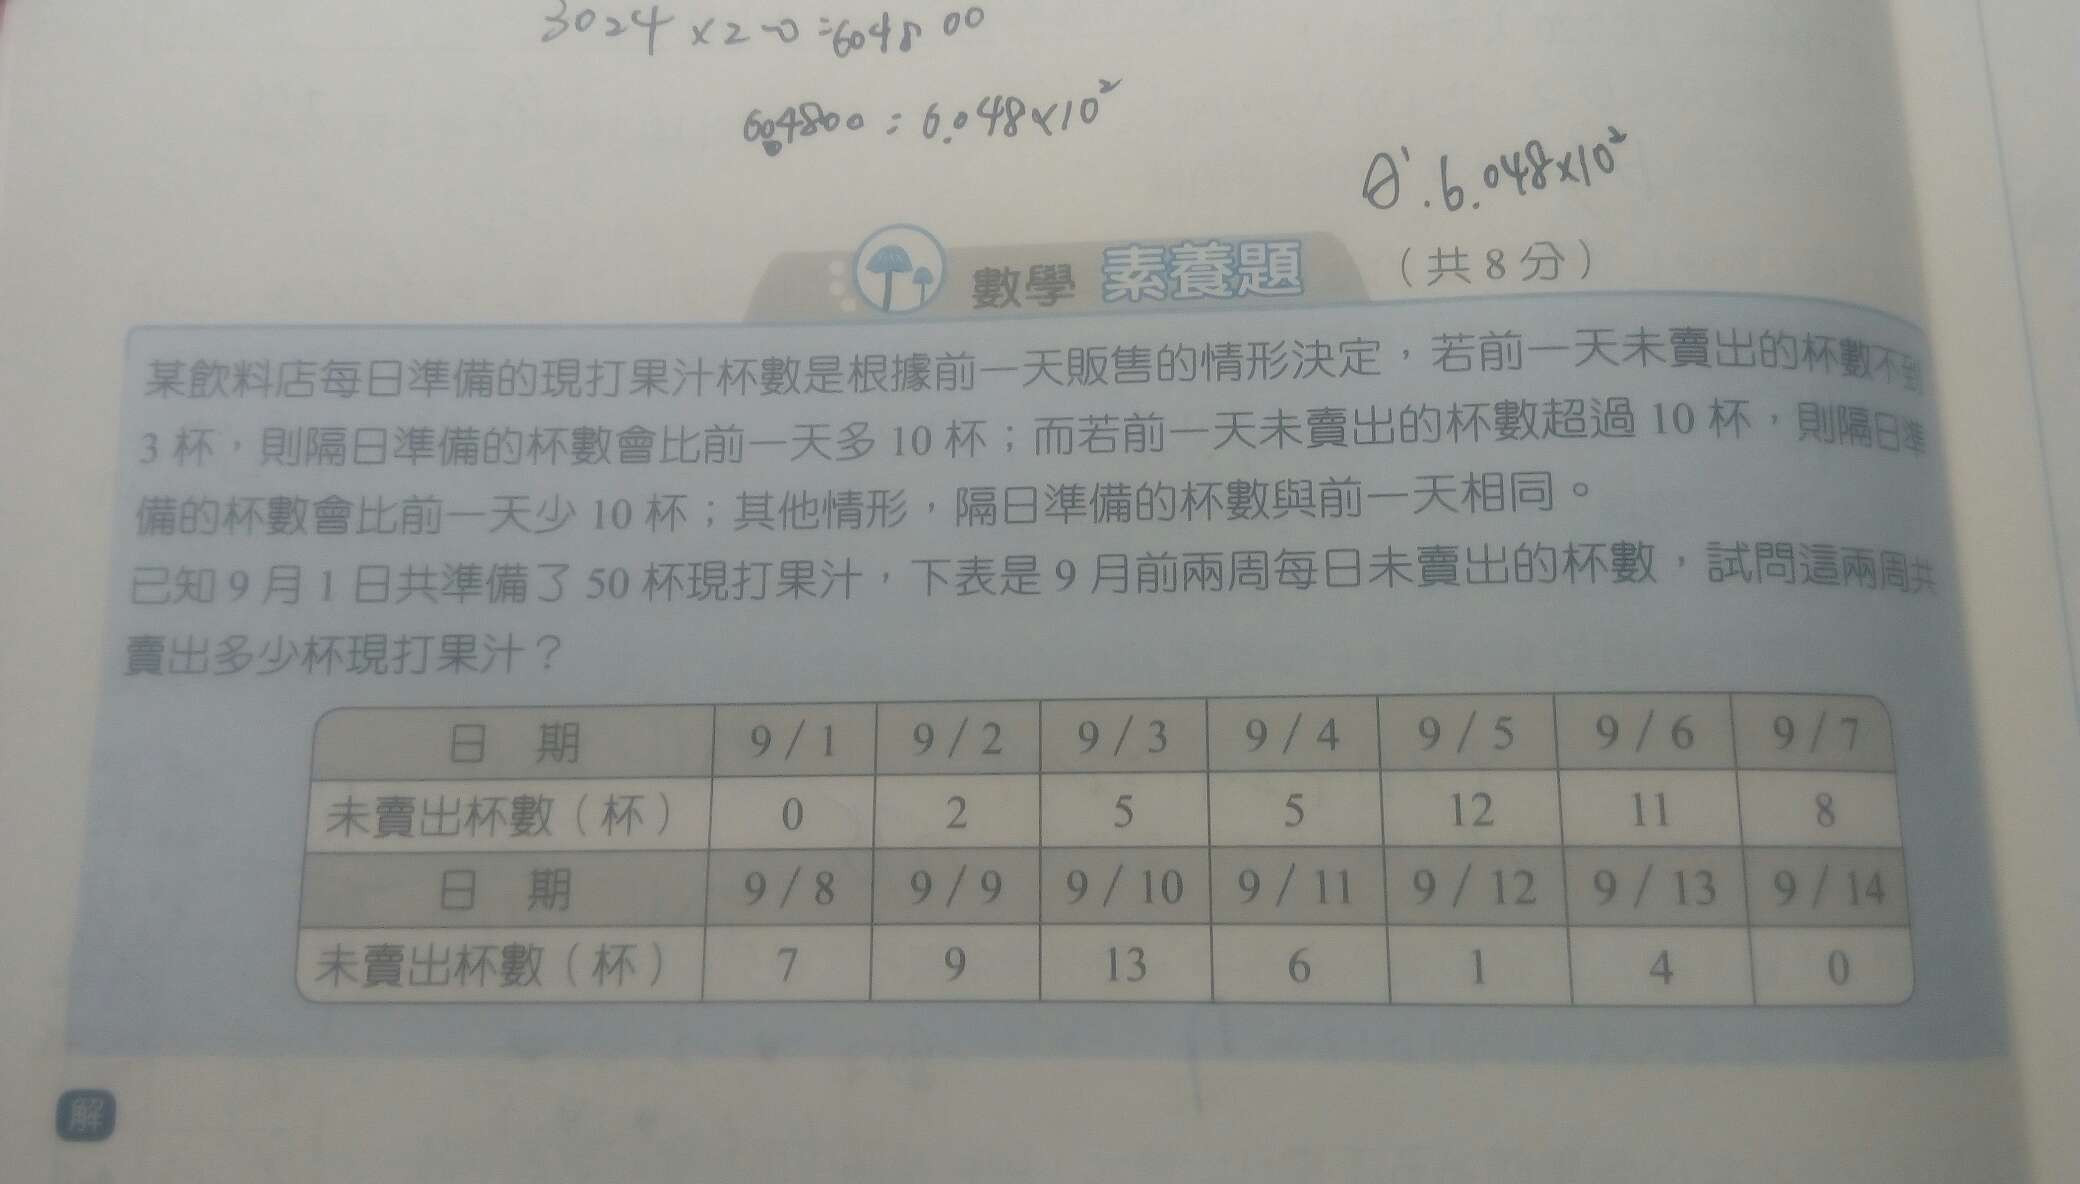 3024×200=604800
604800=6.048×10²
A:6.048×10²
數學 素養題 (共8分)
某飲料店每日準備的現打果汁杯數是根據前一天販售的情形決定，若前一天未賣出的杯數不到
3杯，則隔日準備的杯數會比前一天多10杯；而若前一天未賣出的杯數超過10杯，則隔日準
備的杯數會比前一天少10杯；其他情形，隔日準備的杯數與前一天相同。
已知9月1日共準備了50杯現打果汁，下表是9月前兩周每日未賣出的杯數，試問這兩周共
賣出多少杯現打果汁？
日 期 9/1 9/2 9/3 9/4 9/5 9/6 9/7
未賣出杯數（杯） 0 2 5 5 12 11 8
日 期 9/8 9/9 9/10 9/11 9/12 9/13 9/14
未賣出杯數（杯） 7 9 13 6 1 4 0
解